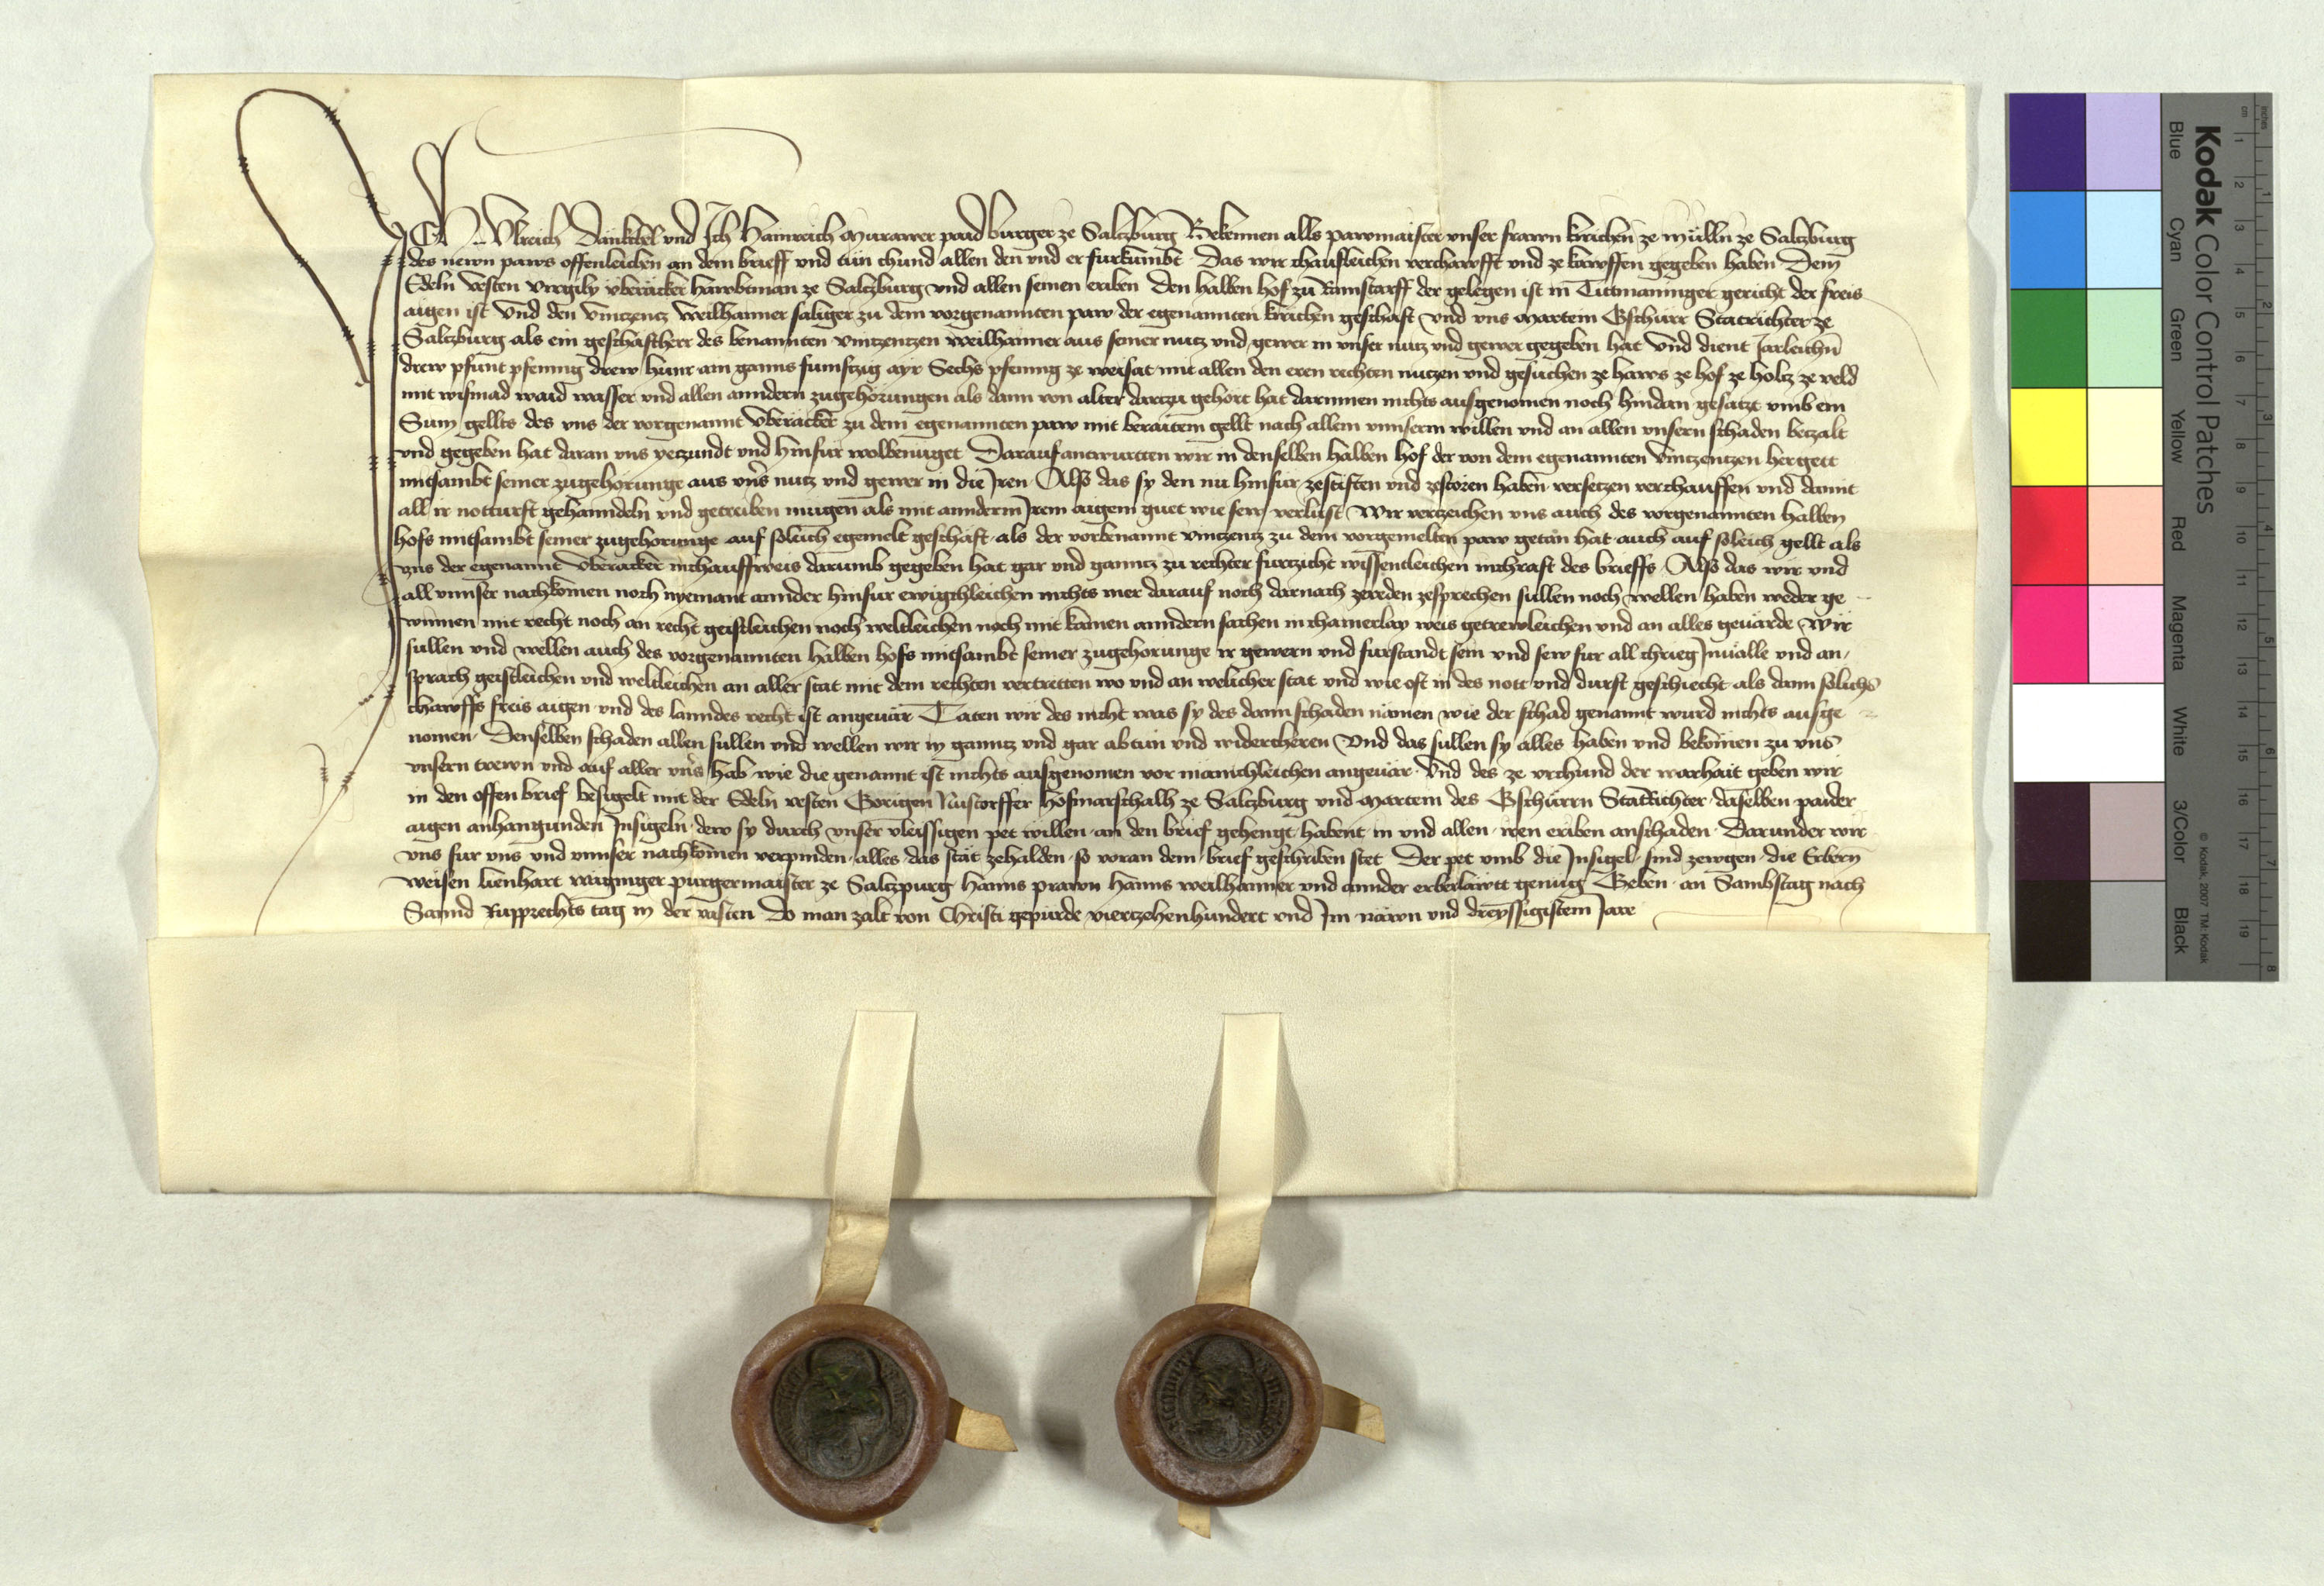 Ich Ulreich Dankchel und Ich Hainreich Murawer paid burger ze Salczburg Bekennen alls pawmaister unser frawn kirichen ze mülln ze Salczburg
des newn paws offenleichen an dem brieff und tün chund allen den und er fürkumbt Das wir chaufleichen verchawfft und ze kawffen gegeben haben Dem
Edeln vesten virgily überäcker hawbtman ze Salczburg und allen seinen eriben Den halben hof zu Ramstarff der gelegen ist in Titmaninger gericht der freis
aigen ist und den vinczencz weilhaimer säliger zu dem vorgenannten paw der egenannten kirichen geschäft und uns Martein Gschürr Statrichter ze
Salczburg als ein geschäftherr des benannten vinczenczen weilhaimer aus seiner nutz und gewer in unser nutz und gewer gegeben hat und dient Järleichn
drew pfunt pfennig drew hünr ain ganns fumfczig ayr Sechs pfennig ze weisat mit allen den eren rechten nutzen und gesüchen ze haws ze hof ze holtz ze veld
mit wismad waid wasser und allen anndern zugehörungen als dann von alter darczu gehört hat darinnen nichts ausgenomen noch hindan gesatzt umb ein
Sum gellts des uns der vorgenannt überäcker zu dem egenannten paw mit beraitem gellt nach allem unnserm willen und an allen unsern schaden betzalt
und gegeben hat daran uns yetzundt und hinfür wolbenüget Darauf antwurtten wir in denselben halben hof der von dem egenannten vinczenczen hergett
mitsambt seiner zugehörunge aus uns nutz und gewer in die Iren Also das sy den nu hinfür zestifften und zestören haben versetzen verchauffen und damit
all ir notturft gehanndeln und getreiben mugen als mit annderm Irem aigem guet wie sew verlüst Wir verczeichen uns auch des vorgenannten halben
hofs mitsambt seiner zugehörunge auf sölich egemelt geschäft als der vorbenannt vinczencz zu dem vorgemelten paw getan hat auch auf söleich gellt als
uns der egenannt überäcker inchauffweis darumb gegeben hat gar und ganncz zu rechter fürczicht wissentleichen inchraft des brieffs Also das wir und
all unnser nachkömen noch nyemant annder hinfür ewigchleichen nichts mer darauf noch darnach zereden zesprechen süllen noch wellen haben weder ge
winnen mit recht noch an recht geistleichen noch weltleichen noch mit kainen anndern sachen inchainerlay weis getrewleichen und an alles gevärde Wir
süllen und wellen auch des vorgenannten halben hofs mitsambt seiner zugehörunge ir gewern und fürstandt sein und sew für all chrieg Invälle und an
sprach geistleichen und weltleichen an aller stat mit dem rechten vertretten wo und an welicher stat und wie oft in des nott und dürft geschiecht als dann sölichs
chawffs freis aigen und des lanndes recht ist angevär Täten wir des nicht was sy des dann schaden nämen wie der schad genannt wurd nichts ausge
nomen Denselben schaden allen süllen und wellen wir in ganntz und gar abtün und widercheren Und das süllen sy alles haben und bekömen zu uns
unsern trewn und auf aller uns hab wie die genannt ist nichts ausgenomen vor mänichleichen angevär Und des ze urchund der warhait geben wir
in den offen brief besigelt mit der Edeln vesten Görigen Nustorffer hofmarschalh ze Salczburg und Martein des Gschürrn Statrichter daselben paider
aigen anhangunden Insigeln dew sy durch unser vleissigen pet willen an den brief gehengt habent in und allen iren eriben anschaden Darunder wir
uns für uns und unnser nachkömen verpinden alles das stät zehalden so voran dem brief geschriben stet Der pet umb die Insigel sind zewgen die Erbern
weisen lienhart wäginger purgermaister ze Salczpurg hanns prawn hanns weilhaimer und annder erberläwtt genüg Geben an Sambstag nach
Sannd Rupprechts tag in der vasten Do man zalt von Christi gepürde vierczehenhundert und Im näwn und dreyssigistem Jare
Kodak Color Control Patches
Blue Cyan Green Yellow Red Magenta White 3/Color Black
© Kodak, 2007 TM: Kodak
cm 1 2 3 4 5 6 7 8 9 10 11 12 13 14 15 16 17 18 19
inches 1 2 3 4 5 6 7 8